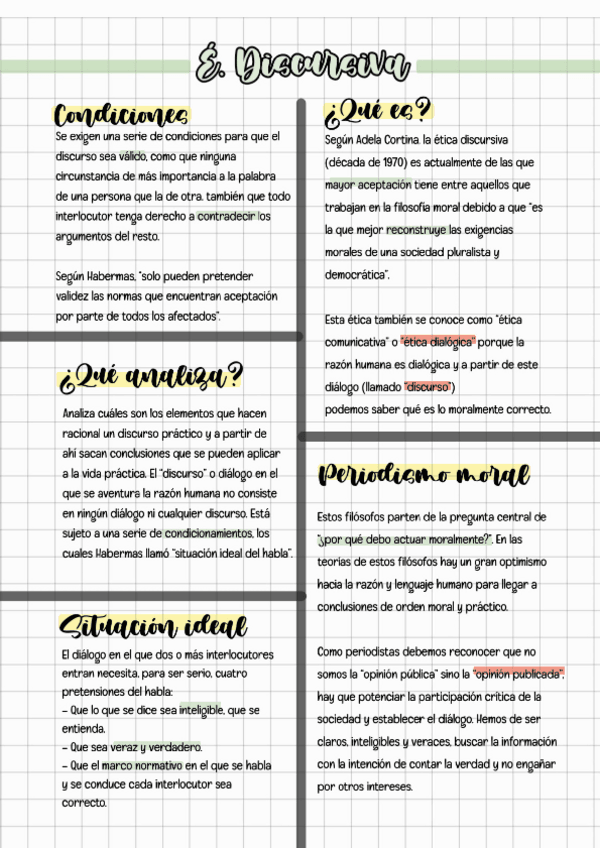 É. Discursiva
Condiciones
Se exigen una serie de condiciones para que el
discurso sea válido, como que ninguna
circunstancia de más importancia a la palabra
de una persona que la de otra. también que todo
interlocutor tenga derecho a contradecir los
argumentos del resto.
Según Habermas, "solo pueden pretender
validez las normas que encuentran aceptación
por parte de todos los afectados".
¿Qué analiza?
Analiza cuáles son los elementos que hacen
racional un discurso práctico y a partir de
ahí sacan conclusiones que se pueden aplicar
a la vida práctica. El "discurso" o diálogo en el
que se aventura la razón humana no consiste
en ningún diálogo ni cualquier discurso. Está
sujeto a una serie de condicionamientos, los
cuales Habermas llamó "situación ideal del habla".
Situación ideal
El diálogo en el que dos o más interlocutores
entran necesita, para ser serio, cuatro
pretensiones del habla:
- Que lo que se dice sea inteligible, que se
entienda.
- Que sea veraz y verdadero.
- Que el marco normativo en el que se habla
y se conduce cada interlocutor sea
correcto.
¿Qué es?
Según Adela Cortina. la ética discursiva
(década de 1970) es actualmente de las que
mayor aceptación tiene entre aquellos que
trabajan en la filosofía moral debido a que "es
la que mejor reconstruye las exigencias
morales de una sociedad pluralista y
democrática".
Esta ética también se conoce como "ética
comunicativa" o "ética dialógica" porque la
razón humana es dialógica y a partir de este
diálogo (llamado "discurso")
podemos saber qué es lo moralmente correcto.
Periodismo moral
Estos filósofos parten de la pregunta central de
"¿por qué debo actuar moralmente?". En las
teorías de estos filósofos hay un gran optimismo
hacia la razón y lenguaje humano para llegar a
conclusiones de orden moral y práctico.
Como periodistas debemos reconocer que no
somos la "opinión pública" sino la "opinión publicada",
hay que potenciar la participación crítica de la
sociedad y establecer el diálogo. Hemos de ser
claros, inteligibles y veraces, buscar la información
con la intención de contar la verdad y no engañar
por otros intereses.